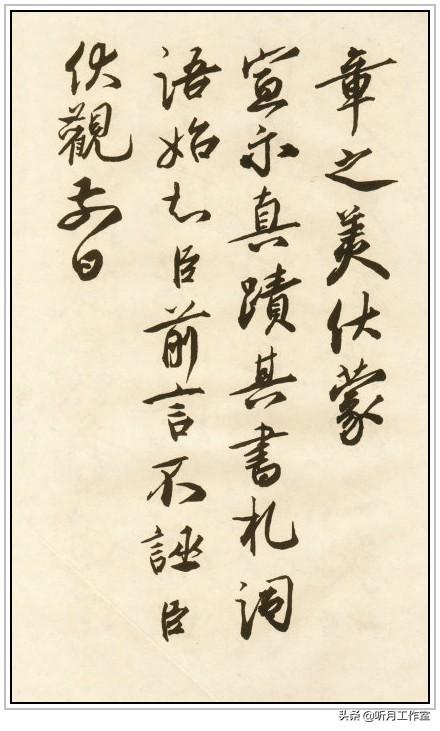 章之美伏蒙
宣示真蹟其書札詞
語始知臣前言不誣臣
伏觀日
头条 @听月工作室